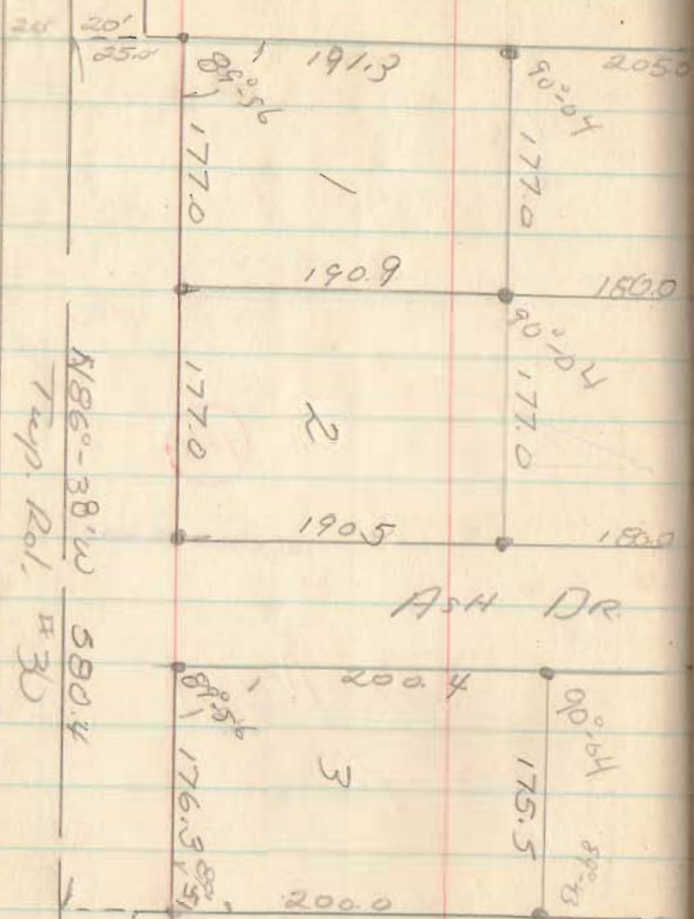 20' 20'
25.0'
89°-56' 191.3 90°-04' 205.0
177.0 1 177.0
190.9 180.0
90°-04'
177.0 2 177.0
190.5 180.0
N86°-38'W 580.4
Twp. Rd. #30
ASH DR.
200.4
89°-56' 90°-04'
176.3 3 175.5
89°-43'
200.0